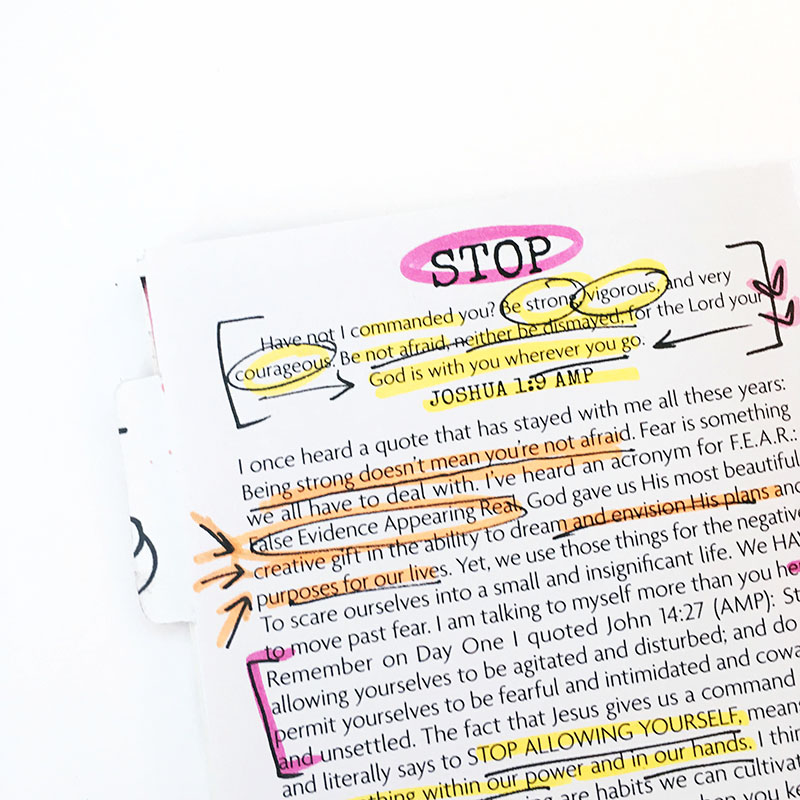 STOP
Have not I commanded you? Be strong, vigorous, and very
courageous. Be not afraid, neither be dismayed, for the Lord your
God is with you wherever you go.
JOSHUA 1:9 AMP
I once heard a quote that has stayed with me all these years:
Being strong doesn't mean you're not afraid. Fear is something
we all have to deal with. I've heard an acronym for F.E.A.R.:
False Evidence Appearing Real. God gave us His most beautiful
creative gift in the ability to dream and envision His plans and
purposes for our lives. Yet, we use those things for the negative
To scare ourselves into a small and insignificant life. We HA
to move past fear. I am talking to myself more than you he
Remember on Day One I quoted John 14:27 (AMP): St
allowing yourselves to be agitated and disturbed; and do
permit yourselves to be fearful and intimidated and cowa
and unsettled. The fact that Jesus gives us a command
and literally says to STOP ALLOWING YOURSELF, means
thing within our power and in our hands. I thin
are habits we can cultivat
you ke